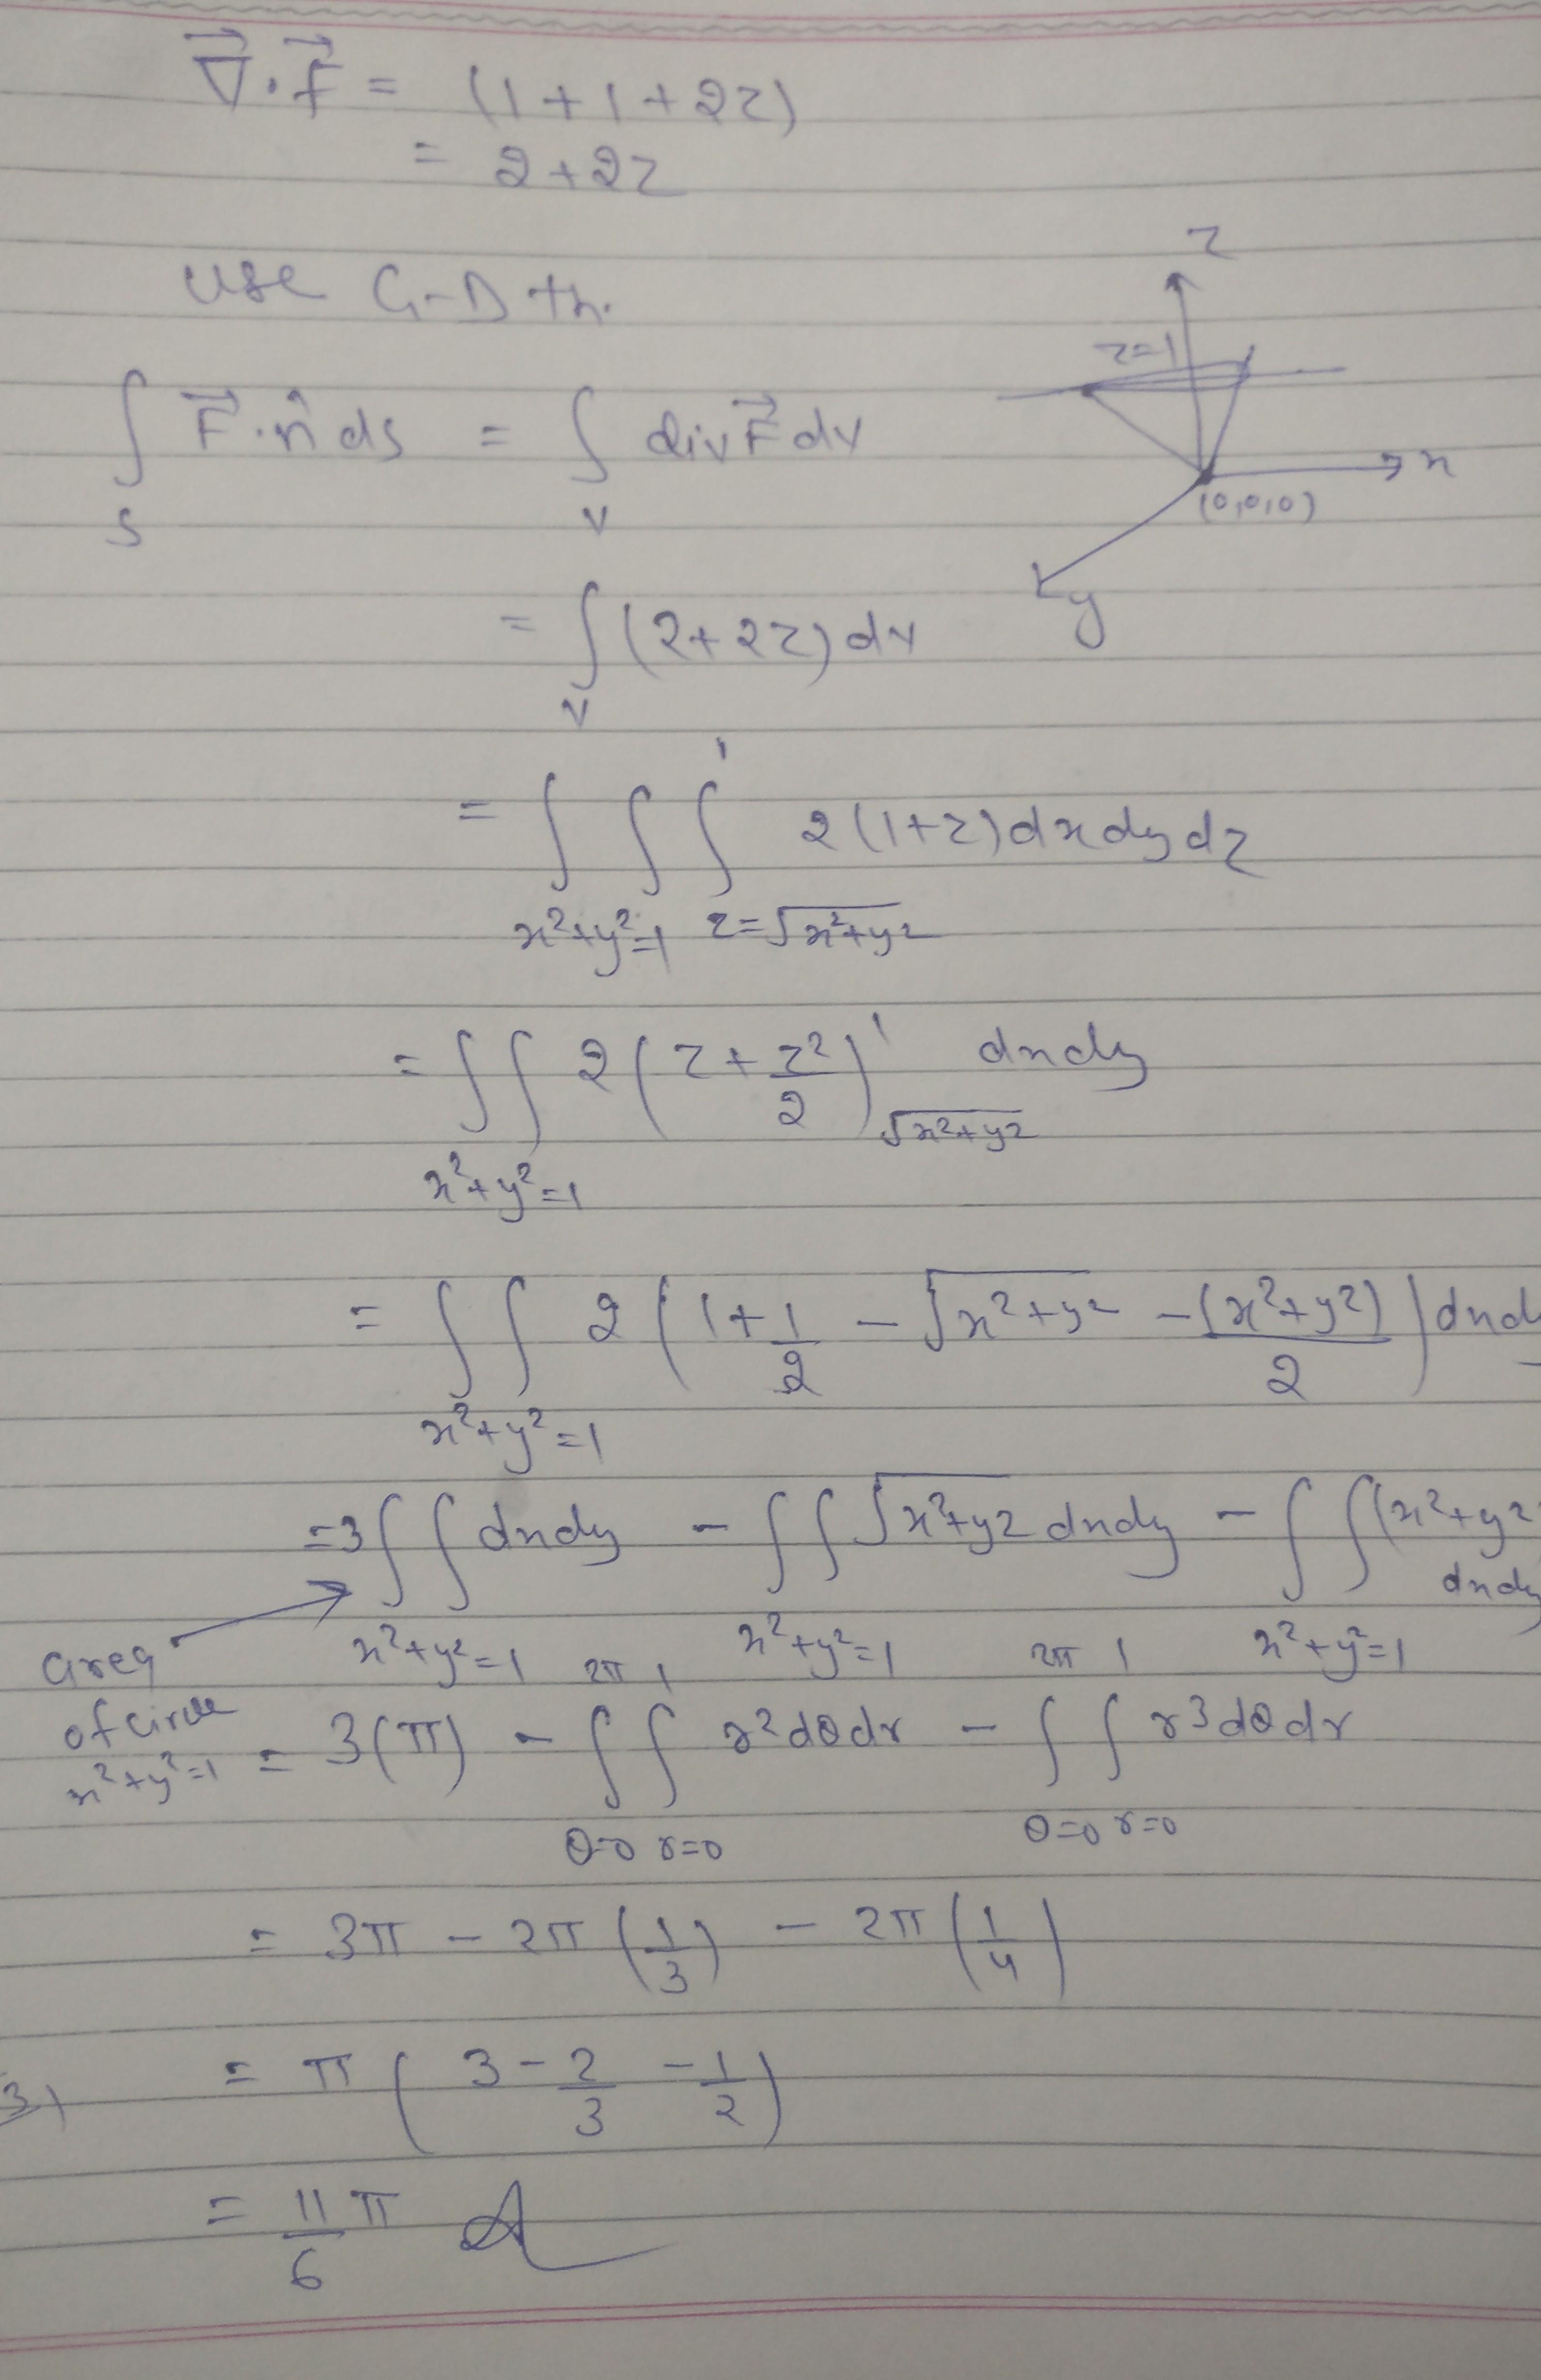 ∇⃗·f⃗ = (1+1+2z)
= 2+2z
use G-D th.
z
z=1
x
(0,0,0)
y
∫_S F⃗·n̂ ds = ∫_V div F⃗ dv
= ∫_V (2+2z) dv
= ∫∫_{x²+y²=1} ∫_{z=√(x²+y²)}^{1} 2(1+z) dx dy dz
= ∫∫_{x²+y²=1} 2(z + z²/2)_{√(x²+y²)}^{1} dx dy
= ∫∫_{x²+y²=1} 2(1 + 1/2 - √(x²+y²) - (x²+y²)/2) dx d
= 3∫∫_{x²+y²=1} dx dy - ∫∫_{x²+y²=1} √(x²+y²) dx dy - ∫∫_{x²+y²=1} (x²+y² dx dy
area
of circle
x²+y²=1
= 3(π) - ∫_{θ=0}^{2π} ∫_{r=0}^{1} r² dθ dr - ∫_{θ=0}^{2π} ∫_{r=0}^{1} r³ dθ dr
= 3π - 2π(1/3) - 2π(1/4)
3)
= π(3 - 2/3 - 1/2)
= 11π/6